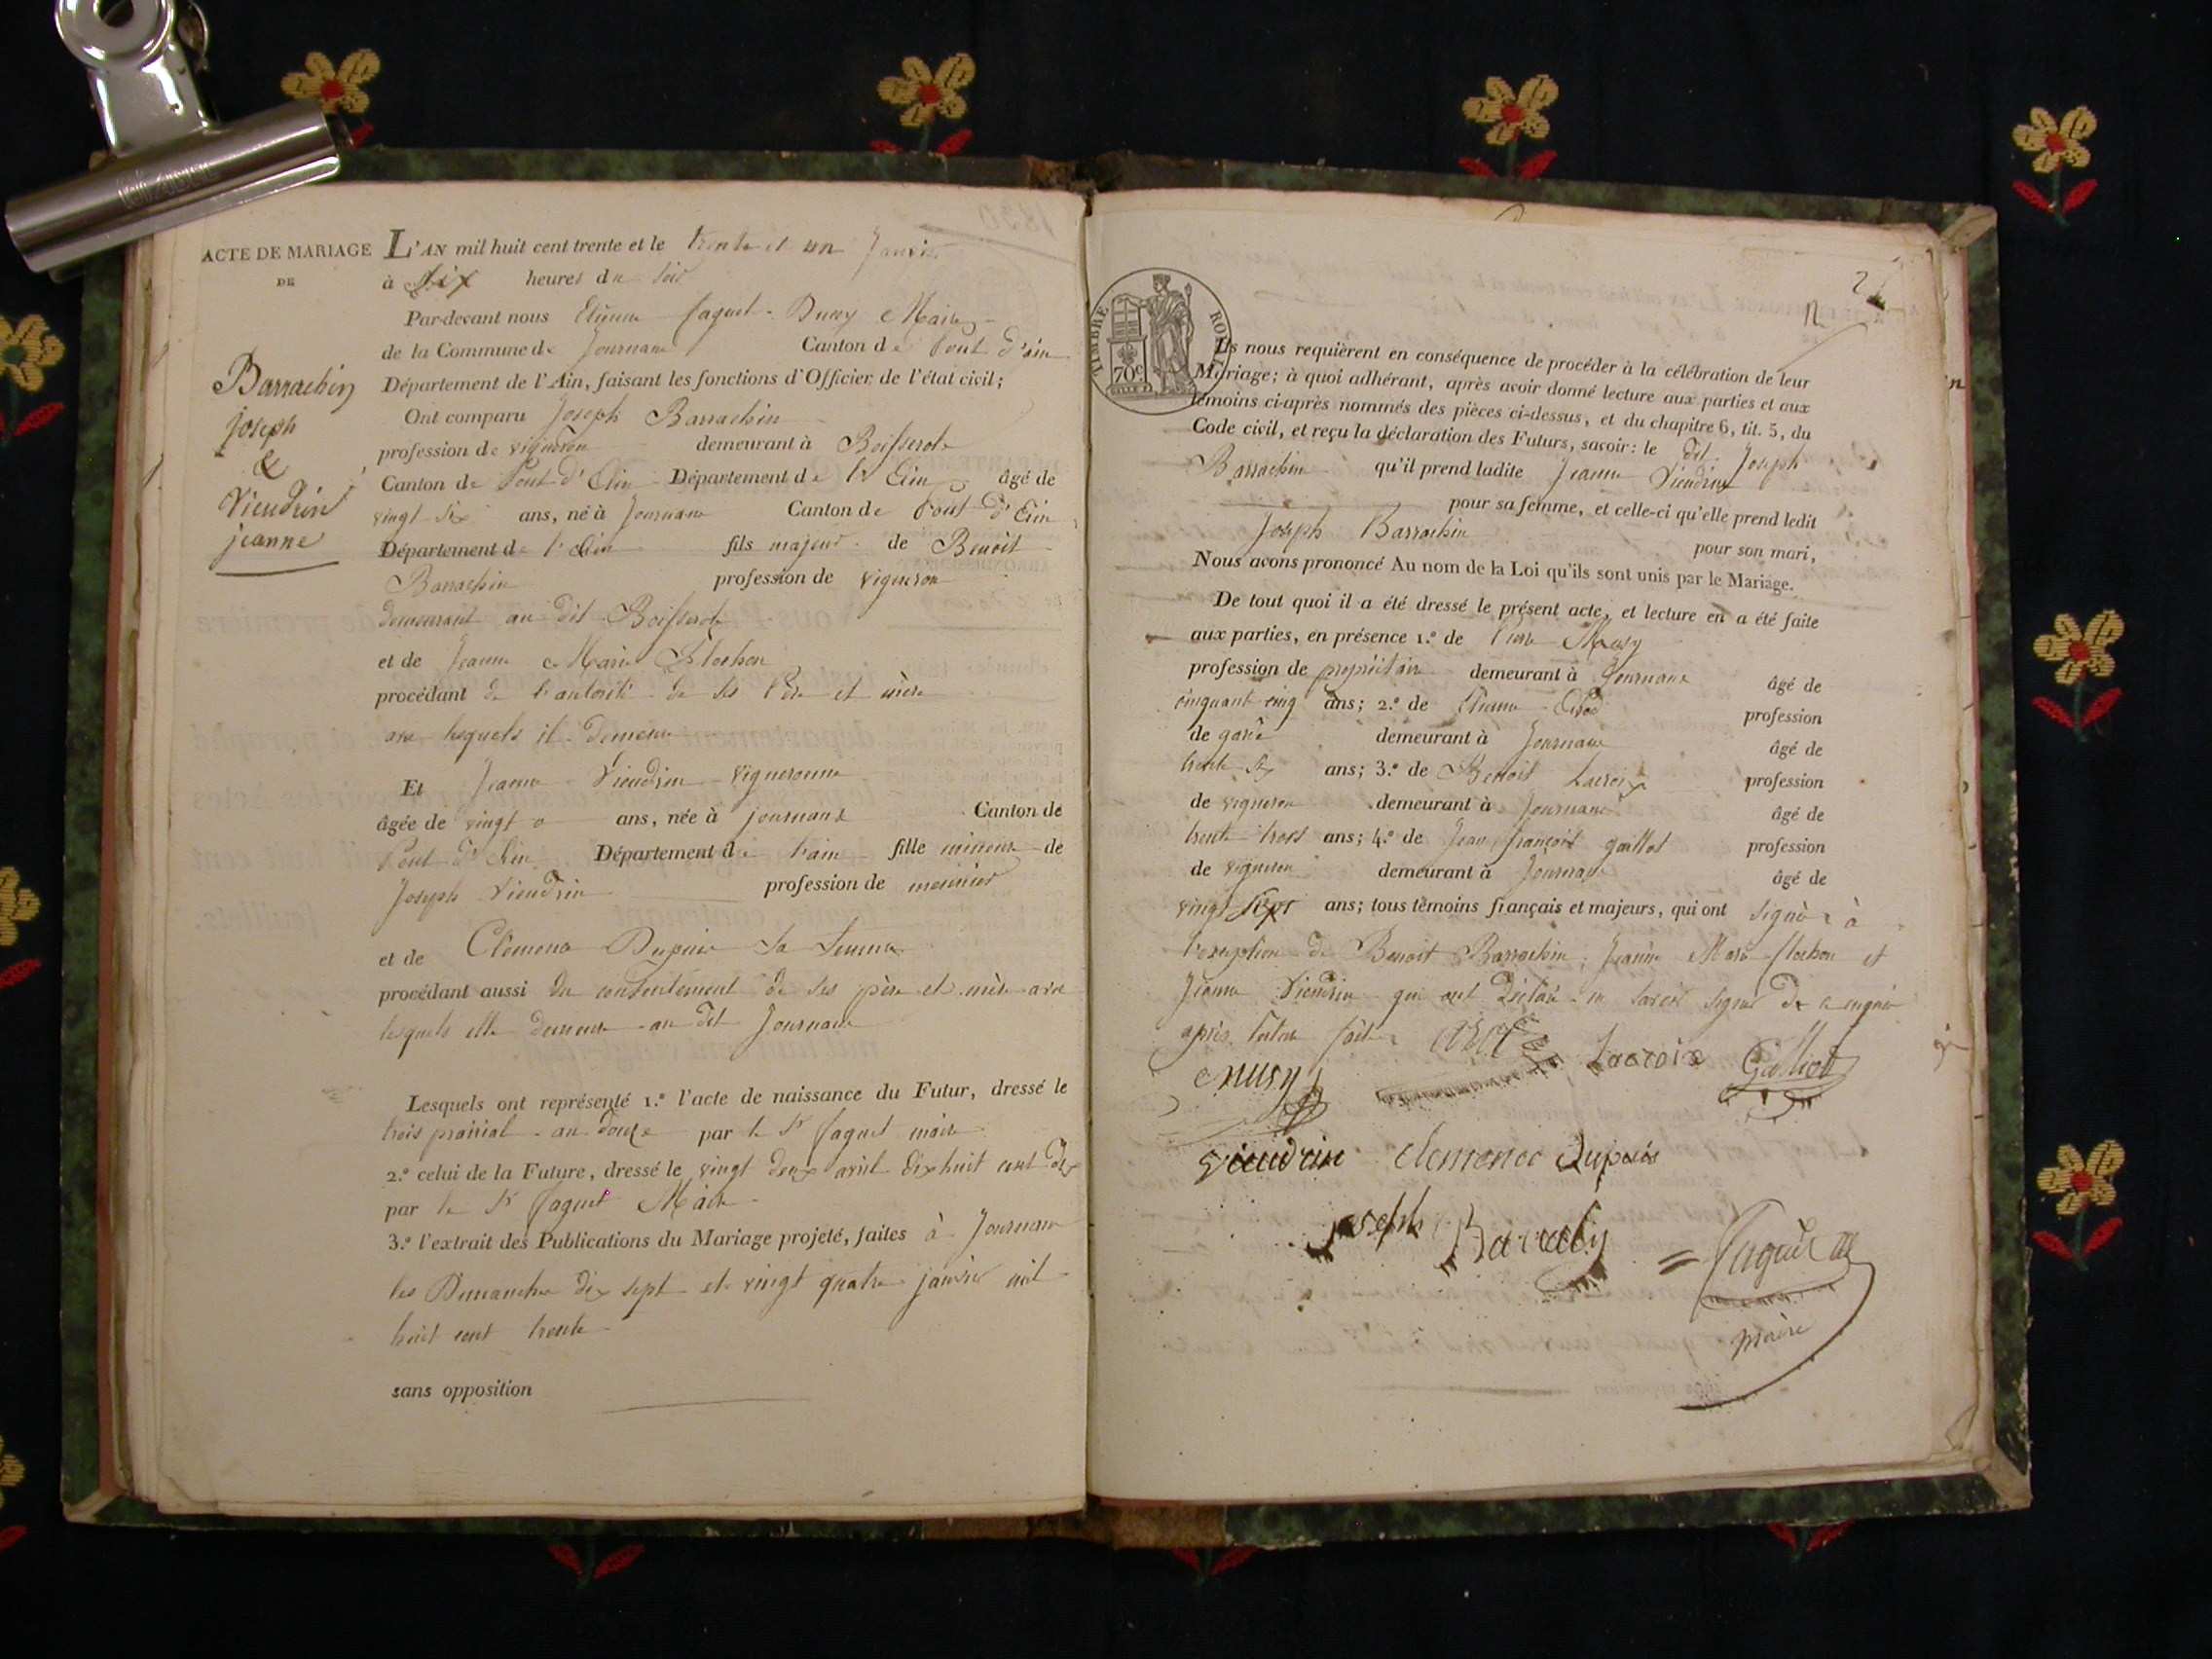 ACTE DE MARIAGE
DE
Barrachin
joseph
&
Vieudrin
jeanne
L'AN mil huit cent trente et le trente et un Janvier
à six heures du soir
Par-devant nous Etienne faguet-Ducry Maire
de la Commune de Journans Canton de Pont d'ain
Département de l'Ain, faisant les fonctions d'Officier de l'état civil;
Ont comparu Joseph Barrachin
profession de vigneron demeurant à Boisserole
Canton de Pont d'Ain Département de l'Ain âgé de
vingt six ans, né à Journans Canton de Pont d'Ain
Département de l'Ain fils majeur de Benoit
Barrachin profession de vigneron
demeurant au dit Boisserole
et de Jeanne Marie
procédant de l'autorité de ses Père et mère
avec lesquels il demeure
Et Jeanne Vieudrin vigneronne
âgée de vingt ans, née à journans Canton de
Pont d'Ain Département de l'ain fille mineure de
Joseph Vieudrin profession de meunier
et de Clémence Dupuis sa femme
procédant aussi du consentement de ses père et mère avec
lesquels elle demeure au dit Journans
Lesquels ont représenté 1.º l'acte de naissance du Futur, dressé le
trois prairial an douze par le Sr faguet maire
2.º celui de la Future, dressé le vingt deux avril dix huit cent dix
par le Sr faguet Maire
3.º l'extrait des Publications du Mariage projeté, faites à Journans
les Dimanches dix sept et vingt quatre janvier mil
huit cent trente
sans opposition
2
TIMBRE ROYAL
70c
Ils nous requièrent en conséquence de procéder à la célébration de leur
Mariage; à quoi adhérant, après avoir donné lecture aux parties et aux
témoins ci-après nommés des pièces ci-dessus, et du chapitre 6, tit. 5, du
Code civil, et reçu la déclaration des Futurs, savoir: le dit Joseph
Barrachin qu'il prend ladite Jeanne Vieudrin
pour sa femme, et celle-ci qu'elle prend ledit
Joseph Barrachin pour son mari,
Nous avons prononcé Au nom de la Loi qu'ils sont unis par le Mariage.
De tout quoi il a été dressé le présent acte, et lecture en a été faite
aux parties, en présence 1.º de Pierre Musy
profession de propriétaire demeurant à Journans âgé de
cinquant cinq ans; 2.º de profession
de garde demeurant à Journans âgé de
trente six ans; 3.º de Benoit Lacroix profession
de vigneron demeurant à Journans âgé de
trente trois ans; 4.º de Jean françois gaillot profession
de vigneron demeurant à Journans âgé de
vingt sept ans; tous témoins français et majeurs, qui ont signé à
l'exception de Benoit Barrachin, Jeanne Marie et
Jeanne Vieudrin qui ont déclaré ne savoir signer de ce enquis
après lecture faite
Musy Lacroix Galliot
Vieudrin clemence Dupuis
joseph Barachy
faguet
maire